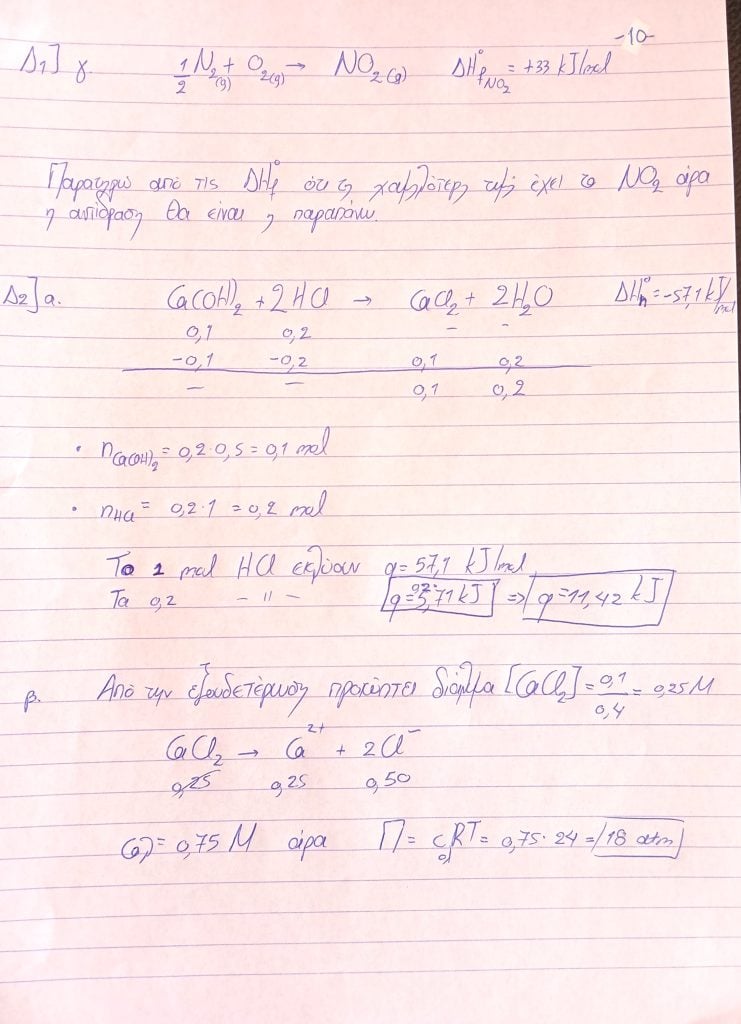 -10-
Δ1] γ. 1/2 N₂(g) + O₂(g) → NO₂(g) ΔH°f NO₂ = +33 kJ/mol
Παρατηρώ από τις ΔH°f ότι τη χαμηλότερη τιμή έχει το NO₂ άρα
η αντίδραση θα είναι η παραπάνω.
Δ2] α. Ca(OH)₂ + 2HCl → CaCl₂ + 2H₂O ΔH°n = -57,1 kJ/mol
0,1 0,2 - -
-0,1 -0,2 0,1 0,2
- - 0,1 0,2
• nCa(OH)₂ = 0,2·0,5 = 0,1 mol
• nHCl = 0,2·1 = 0,2 mol
Το 1 mol HCl εκλύουν q = 57,1 kJ/mol
Τα 0,2 -〃 - ⇒ q = 11,42 kJ
β. Από την εξουδετέρωση προκύπτει διάλυμα [CaCl₂] = 0,1/0,4 = 0,25 M
CaCl₂ → Ca²⁺ + 2Cl⁻
0,25 0,25 0,50
cολ = 0,75 M άρα Π = cολRT = 0,75·24 = 18 atm